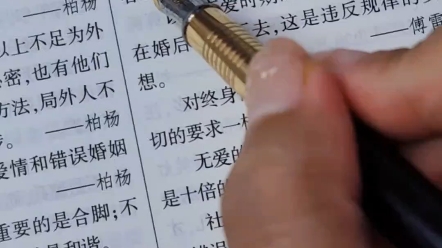 ——柏杨
以上不足为外
密,也有他们
方法,局外人不
——柏杨
爱情和错误婚姻
——柏杨
重要的是合脚;不
是和谐。
爱的期
在婚后
去,这是违反规律的
想。
——傅雷
对终身
切的要求一
无爱的
是十倍的
社
错误